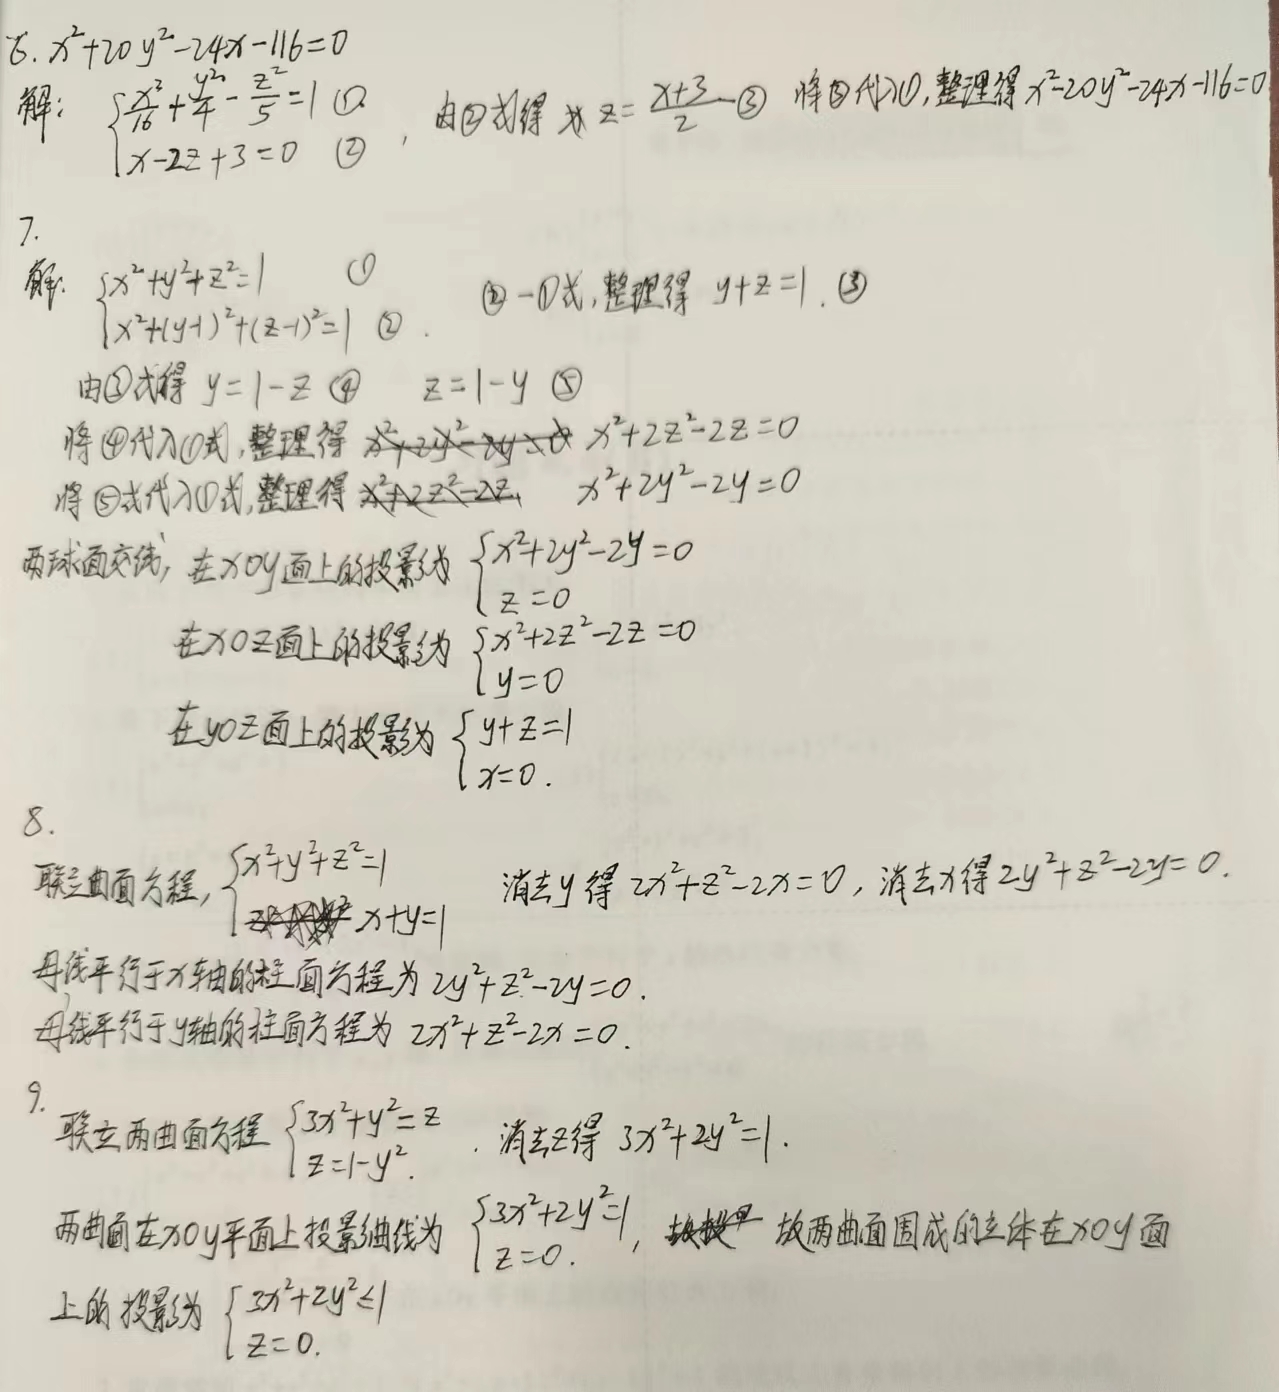 6. x²+20y²-24x-116=0
解: {x²/16+y²/4-z²/5=1 ① x-2z+3=0 ② , 由②式得 z=(x+3)/2 ③ 将③代入①,整理得 x²-20y²-24x-116=0
7.
解: {x²+y²+z²=1 ①
x²+(y-1)²+(z-1)²=1 ② . ②-①式,整理得 y+z=1. ③
由③式得 y=1-z ④ z=1-y ⑤
将④代入①式,整理得 x²+2z²-2z=0
将⑤式代入①式,整理得 x²+2y²-2y=0
两球面交线,在xOy面上的投影为 {x²+2y²-2y=0
z=0
在xOz面上的投影为 {x²+2z²-2z=0
y=0
在yOz面上的投影为 {y+z=1
x=0.
8.
联立曲面方程, {x²+y²+z²=1
x+y=1 消去y得 2x²+z²-2x=0, 消去x得 2y²+z²-2y=0.
母线平行于x轴的柱面方程为 2y²+z²-2y=0.
母线平行于y轴的柱面方程为 2x²+z²-2x=0.
9.
联立两曲面方程 {3x²+y²=z
z=1-y². . 消去z得 3x²+2y²=1.
两曲面在xOy平面上投影曲线为 {3x²+2y²=1
z=0. , 故两曲面围成的立体在xOy面
上的投影为 {3x²+2y²≤1
z=0.